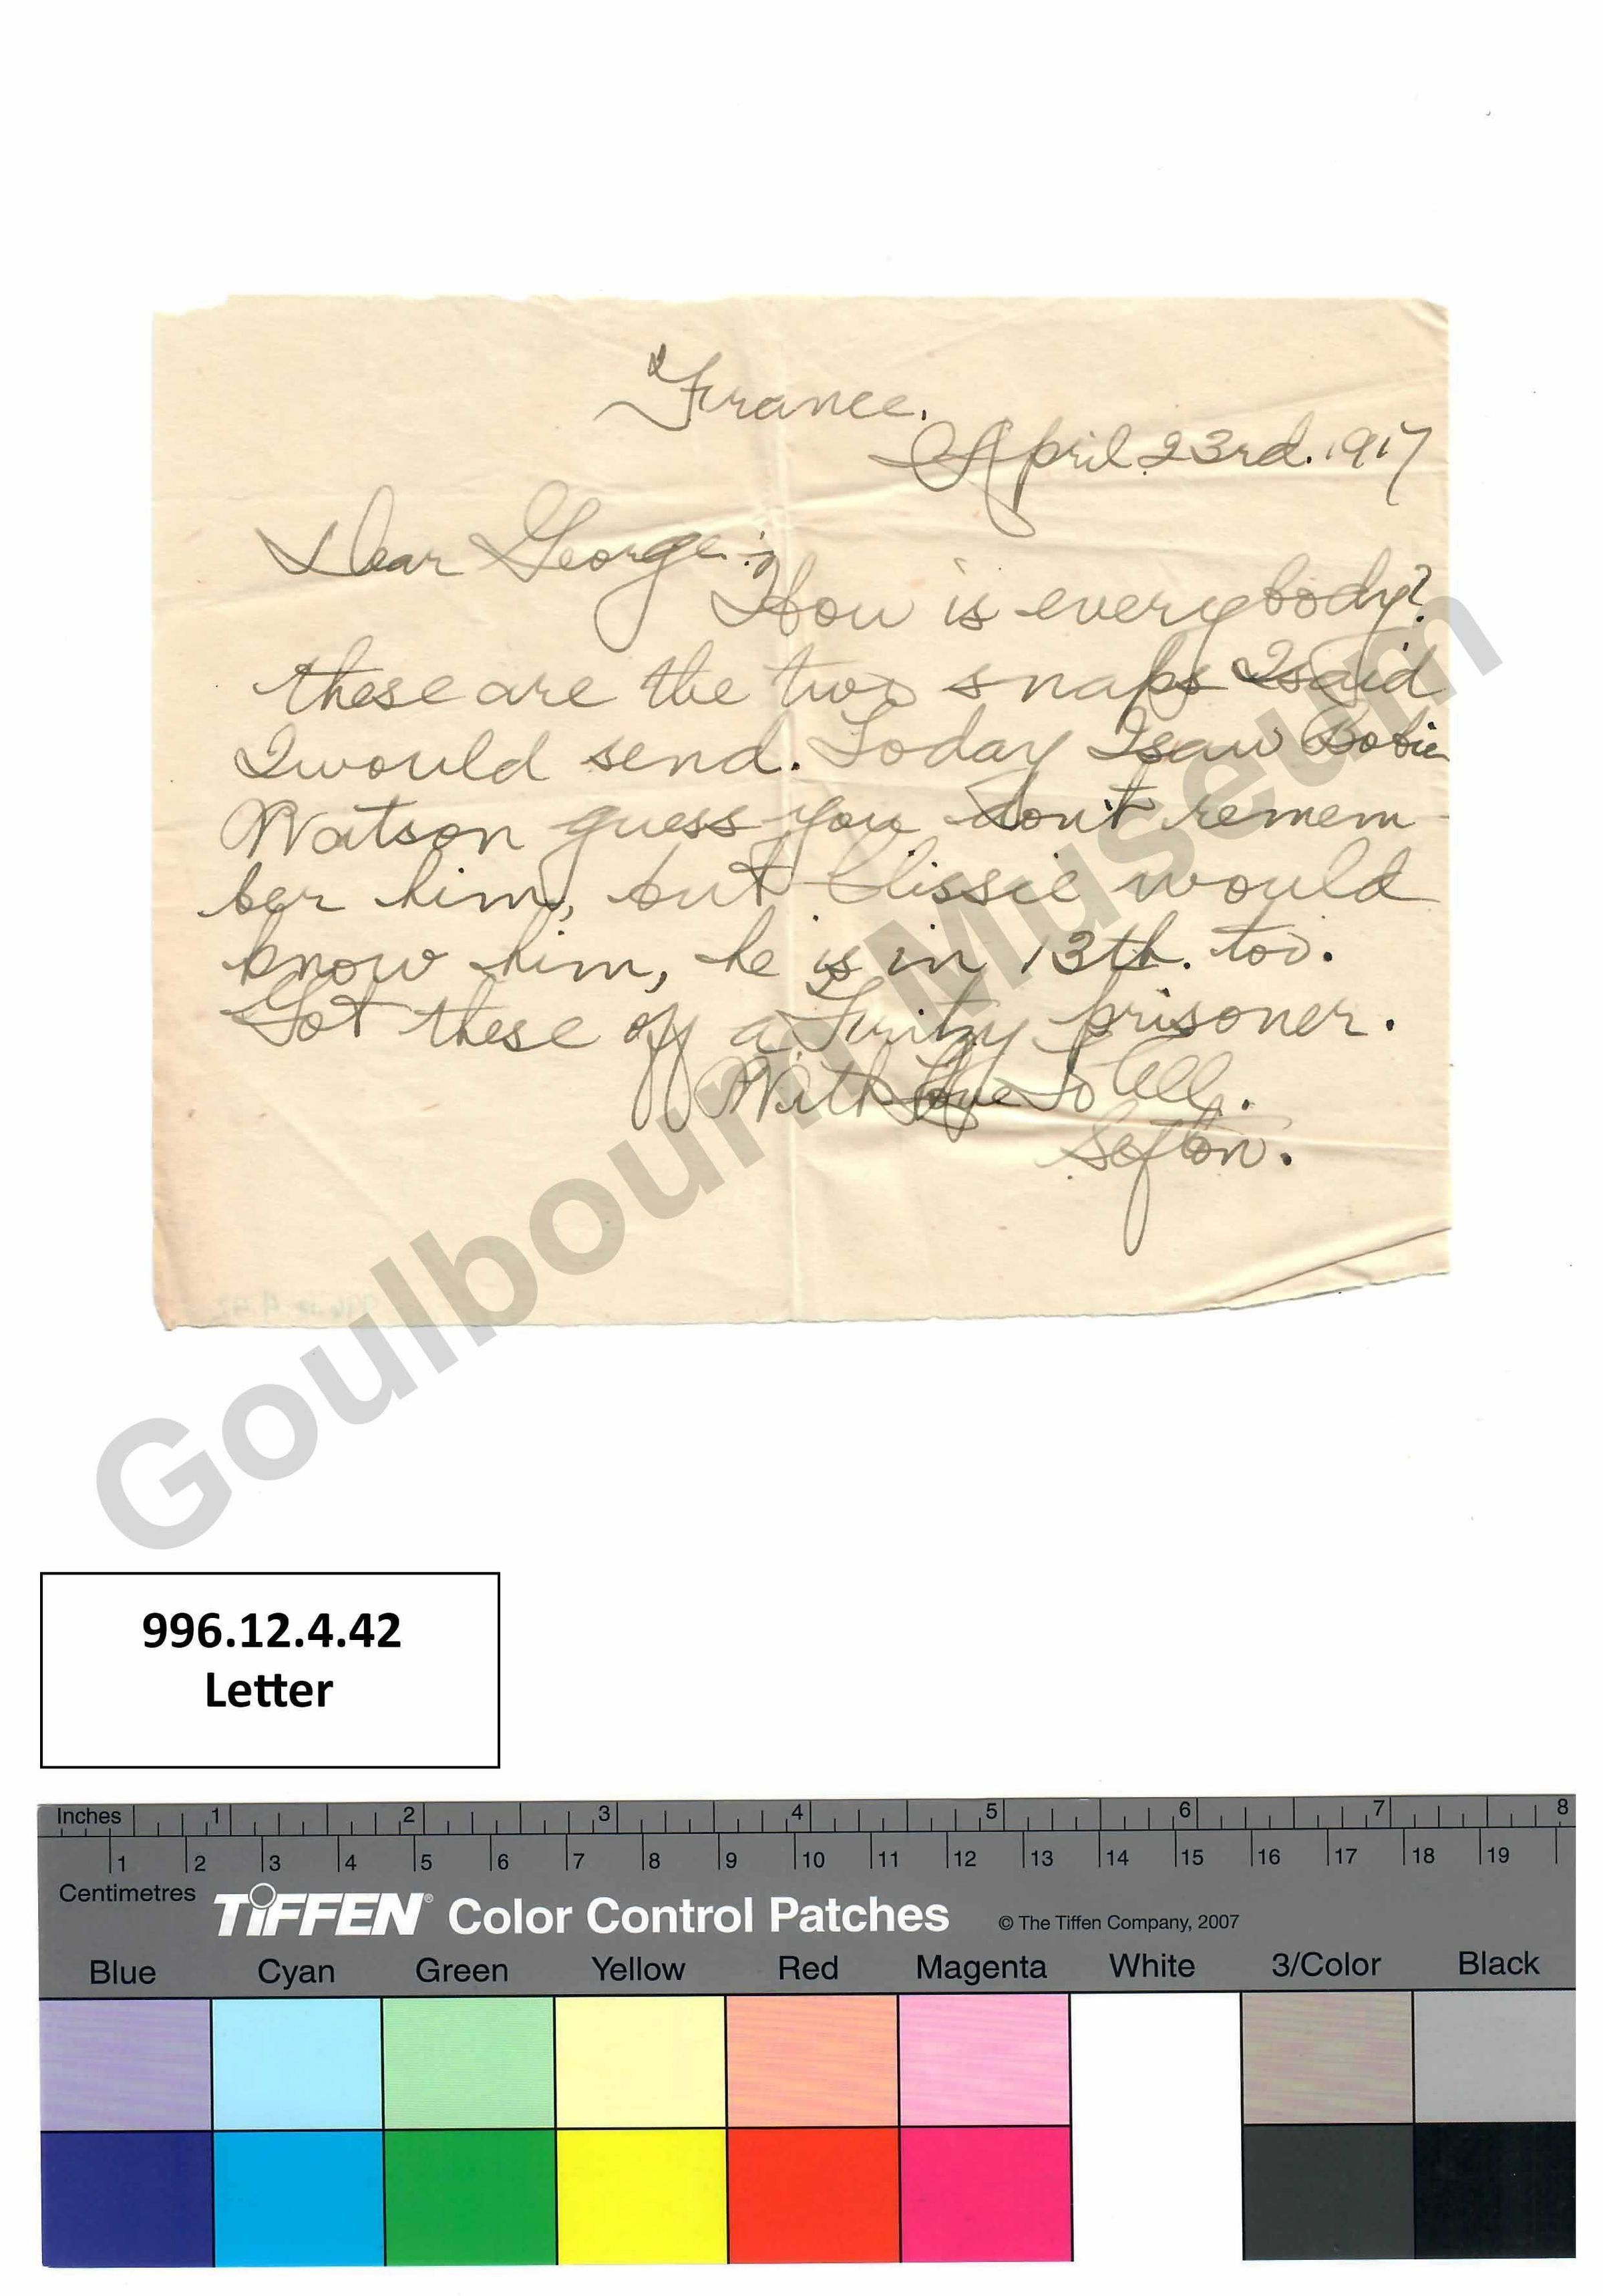 France.
April 23rd. 1917
Dear George:-
How is everybody?
these are the two snaps I said
I would send. Today I saw Bobie
Watson guess you don't remem-
ber him, but Clissie would
know him, he is in 13th. too.
Got these off a Fritzy prisoner.
With Love To All.
Sefton.
Goulbourn Museum
996.12.4.42
Letter
Inches 1 2 3 4 5 6 7 8
1 2 3 4 5 6 7 8 9 10 11 12 13 14 15 16 17 18 19
Centimetres
TIFFEN® Color Control Patches © The Tiffen Company, 2007
Blue Cyan Green Yellow Red Magenta White 3/Color Black